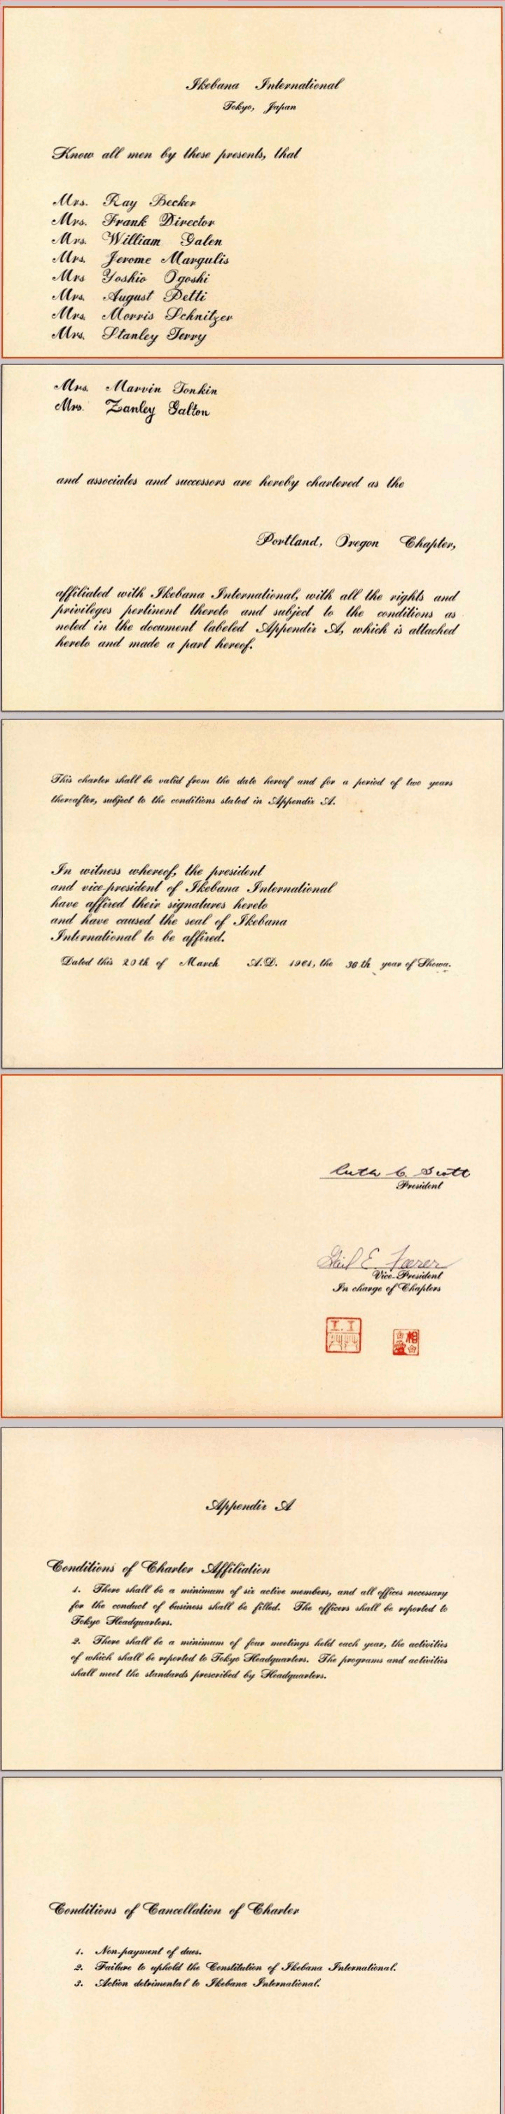 Ikebana International
Tokyo, Japan
Know all men by these presents, that
Mrs. Ray Becker
Mrs. Frank Director
Mrs. William Galen
Mrs. Jerome Margulis
Mrs Yoshio Ogoshi
Mrs. August Petti
Mrs. Morris Schnitzer
Mrs. Stanley Terry
Mrs. Marvin Tonkin
Mrs. Zanley Galton
and associates and successors are hereby chartered as the
Portland, Oregon Chapter,
affiliated with Ikebana International, with all the rights and
privileges pertinent thereto and subject to the conditions as
noted in the document labeled Appendix A, which is attached
hereto and made a part hereof.
This charter shall be valid from the date hereof and for a period of two years
thereafter, subject to the conditions stated in Appendix A.
In witness whereof, the president
and vice-president of Ikebana International
have affixed their signatures hereto
and have caused the seal of Ikebana
International to be affixed.
Dated this 20th of March A.D. 1961, the 36th year of Showa.
Ruth C. Scott
President
E.
Vice-President
In charge of Chapters
I.I
Appendix A
Conditions of Charter Affiliation
1. There shall be a minimum of six active members, and all offices necessary
for the conduct of business shall be filled. The officers shall be reported to
Tokyo Headquarters.
2. There shall be a minimum of four meetings held each year, the activities
of which shall be reported to Tokyo Headquarters. The programs and activities
shall meet the standards prescribed by Headquarters.
Conditions of Cancellation of Charter
1. Non-payment of dues.
2. Failure to uphold the Constitution of Ikebana International.
3. Action detrimental to Ikebana International.